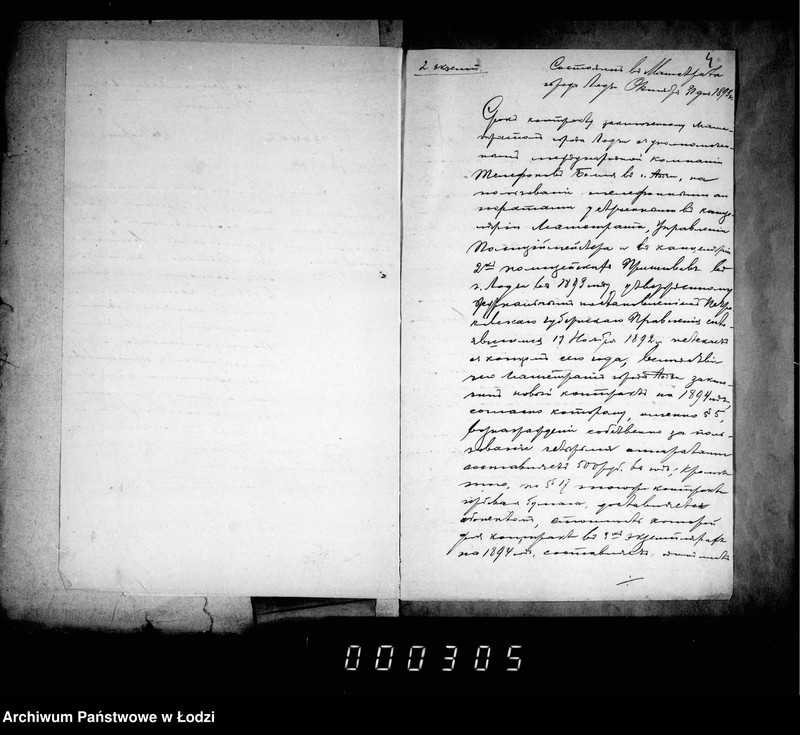 4
2 экземп.
Состоялся въ Магистратѣ
города Лодзи Октября дня 189
Срокъ контракту заключенному Маги-
стратомъ города Лодзи съ уполномочен-
нымъ международной компаніи
Телефоновъ Белля въ г. Лодзи, на
пользованіе телефонными ап-
паратами устроенными въ канце-
ляріи Магистрата, Управленіи
Полиціймейстера и въ канцеляріи
2го полицейскаго въ
г. Лодзи въ 1893 году, утвержденному
журнальнымъ постановленіемъ Петро-
ковскаго Губернскаго Правленія состо-
явшимся 17 Ноября 1892 г. истекаетъ
съ концомъ сего года, вслѣдствіе
чего Магистратъ города Лодзи заклю-
чилъ новый контрактъ на 1894 годъ,
согласно которому, именно § 5,
вознагражденіе собственно за поль-
зованіе четырьмя аппаратами
составляетъ 500 руб. въ годъ, кромѣ
того, по § 17 того контракта
гербовая бумага доставляется
абонентомъ, стоимость которой
для контракта въ экземплярахъ
на 1894 годъ составляетъ
000305
Archiwum Państwowe w Łodzi